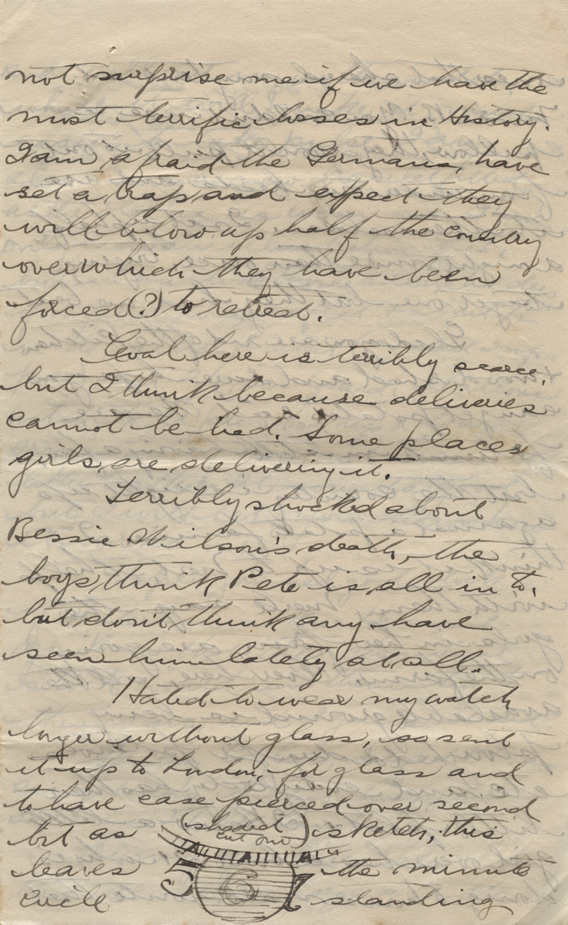 not surprise me if we have the
most terrific losses in History.
I am afraid the Germans, have
set a trap and expect they
will blow up half the country
over which they have been
forced (?) to retreat.
Coal here is terribly scarce,
but I think because deliveries
cannot be had. Some places
girls, are delivering it.
Terribly shocked about
Bessie Wilson's death, the
boys, think Pete is all in to,
but don't think any have
seen him lately at all.
Hated to wear my watch
longer without glass, so sent
it up to London, for glass and
to have case pierced over second
bit as (shaded cut out) sketch, this
leaves 5 6 7 the minute
circle standing